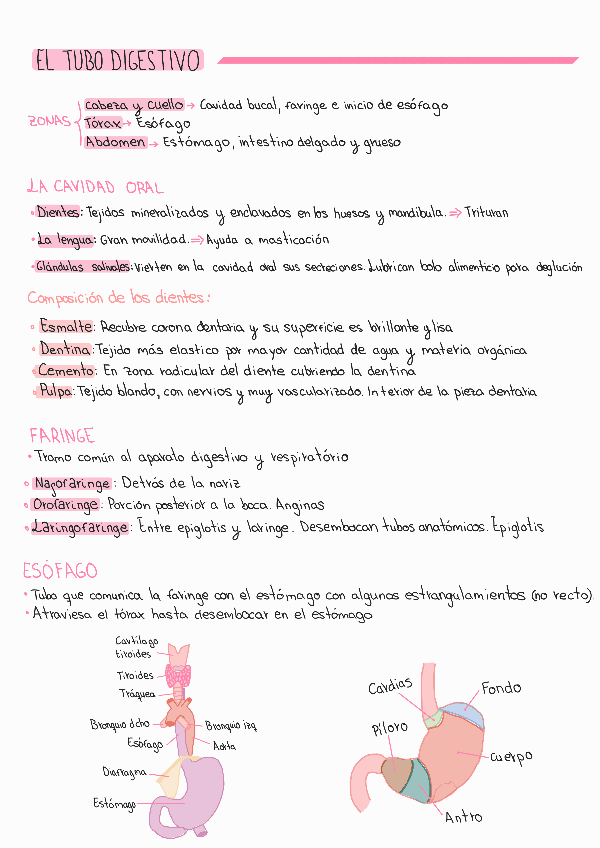 EL TUBO DIGESTIVO
Cabeza y cuello → Cavidad bucal, faringe e inicio de esófago
ZONAS Tórax → Esófago
Abdomen → Estómago, intestino delgado y grueso
LA CAVIDAD ORAL
• Dientes: Tejidos mineralizados y enclavados en los huesos y mandíbula. ⇒ Trituran
• La lengua: Gran movilidad. ⇒ Ayuda a masticación
• Glándulas salivales: Vierten en la cavidad oral sus secreciones. Lubrican bolo alimenticio para deglución
Composición de los dientes:
◦ Esmalte: Recubre corona dentaria y su superficie es brillante y lisa
◦ Dentina: Tejido más elastico por mayor cantidad de agua y materia orgánica
◦ Cemento: En zona radicular del diente cubriendo la dentina
◦ Pulpa: Tejido blando, con nervios y muy vascularizado. Interior de la pieza dentaria
FARINGE
• Tramo común al aparato digestivo y respiratório
◦ Nasofaringe: Detrás de la nariz
◦ Orofaringe: Porción posterior a la boca. Anginas
◦ Laringofaringe: Entre epiglotis y laringe. Desembocan tubos anatómicos. Epiglotis
ESÓFAGO
• Tubo que comunica la faringe con el estómago con algunos estrangulamientos (no recto)
• Atraviesa el tórax hasta desembocar en el estómago
Cartílago
tiroides
Tiroides
Tráquea
Bronquio dcho
Bronquio izq
Esófago
Aorta
Diafragma
Estómago
Cardias
Fondo
Píloro
Cuerpo
Antro